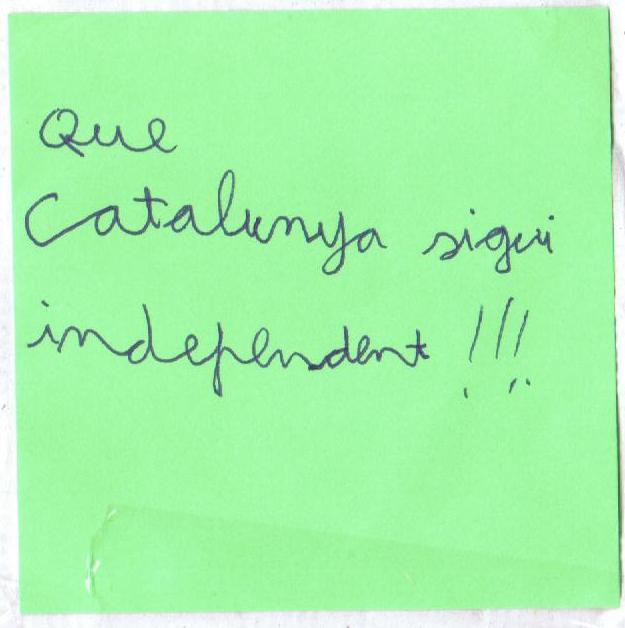 Que
Catalunya sigui
independent !!!